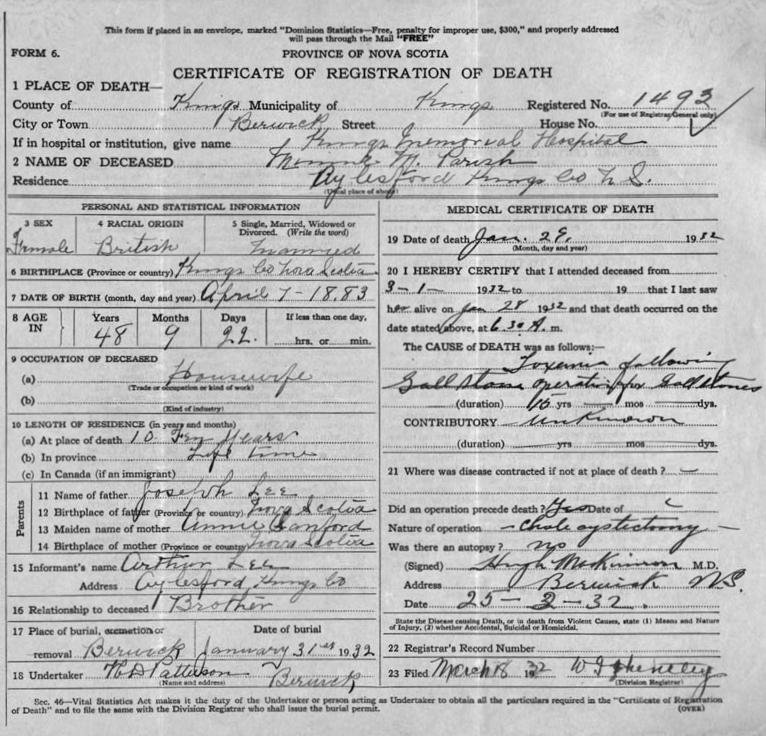 This form if placed in an envelope, marked "Dominion Statistics—Free, penalty for improper use, $300," and properly addressed
will pass through the Mail "FREE"
FORM 6.
PROVINCE OF NOVA SCOTIA
CERTIFICATE OF REGISTRATION OF DEATH
1 PLACE OF DEATH—
County of Kings Municipality of Kings Registered No. 1493
(For use of Registrar General only)
City or Town Berwick Street House No.
If in hospital or institution, give name Kings Memorial Hospital
2 NAME OF DECEASED M. Parish
Residence Aylesford Kings Co N.S.
(Usual place of abode)
PERSONAL AND STATISTICAL INFORMATION
3 SEX 4 RACIAL ORIGIN 5 Single, Married, Widowed or
Divorced. (Write the word)
Female British Married
6 BIRTHPLACE (Province or country) Kings Co Nova Scotia
7 DATE OF BIRTH (month, day and year) April 7-1883
8 AGE IN Years Months Days If less than one day,
48 9 22. hrs. or min.
9 OCCUPATION OF DECEASED
(a) Housewife
(Trade or occupation or kind of work)
(b)
(Kind of industry)
10 LENGTH OF RESIDENCE (in years and months)
(a) At place of death 10 Years
(b) In province Life time
(c) In Canada (if an immigrant)
Parents
11 Name of father Joseph Lee
12 Birthplace of father (Province or country) Nova Scotia
13 Maiden name of mother Annie Sanford
14 Birthplace of mother (Province or country) Nova Scotia
15 Informant's name Arthur Lee
Address Aylesford, Kings Co
16 Relationship to deceased Brother
17 Place of burial, cremation or Date of burial
removal Berwick January 31st 1932
18 Undertaker Patterson Berwick
(Name and address)
MEDICAL CERTIFICATE OF DEATH
19 Date of death Jan. 29, 1932
(Month, day and year)
20 I HEREBY CERTIFY that I attended deceased from
3-1- 1932 to 19 that I last saw
her alive on Jan 28 1932 and that death occurred on the
date stated above, at 6.30 A. m.
The CAUSE of DEATH was as follows:—
Toxemia following
Gall Stone operation for Gall stones
(duration) 15 yrs — mos — dys.
CONTRIBUTORY unknown
(duration) yrs mos dys.
21 Where was disease contracted if not at place of death? —
Did an operation precede death? Yes Date of
Nature of operation - cholecystectomy -
Was there an autopsy? no
(Signed) Hugh McKinnon M.D.
Address Berwick N.S.
Date 25-2-32.
State the Disease causing Death, or in death from Violent Causes, state (1) Means and Nature
of Injury, (2) whether Accidental, Suicidal or Homicidal.
22 Registrar's Record Number
23 Filed March 8 1932 W
(Division Registrar)
Sec. 46—Vital Statistics Act makes it the duty of the Undertaker or person acting as Undertaker to obtain all the particulars required in the "Certificate of Registration
of Death" and to file the same with the Division Registrar who shall issue the burial permit.
(OVER)